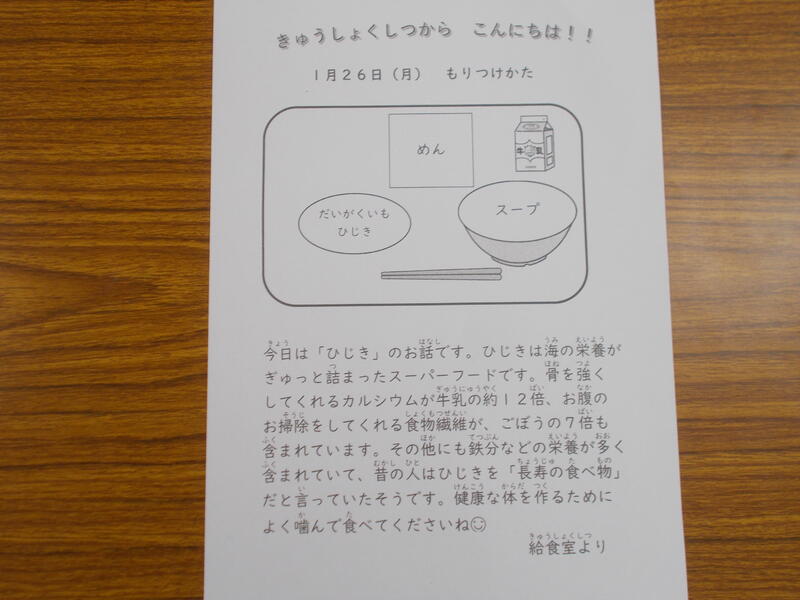 きゅうしょくしつから　こんにちは！！
１月２６日（月）　もりつけかた
めん
牛乳
だいがくいも
ひじき
スープ
今日は「ひじき」のお話です。ひじきは海の栄養が
ぎゅっと詰まったスーパーフードです。骨を強く
してくれるカルシウムが牛乳の約１２倍、お腹の
お掃除をしてくれる食物繊維が、ごぼうの７倍も
含まれています。その他にも鉄分などの栄養が多く
含まれていて、昔の人はひじきを「長寿の食べ物」
だと言っていたそうです。健康な体を作るために
よく噛んで食べてくださいね☺
給食室より